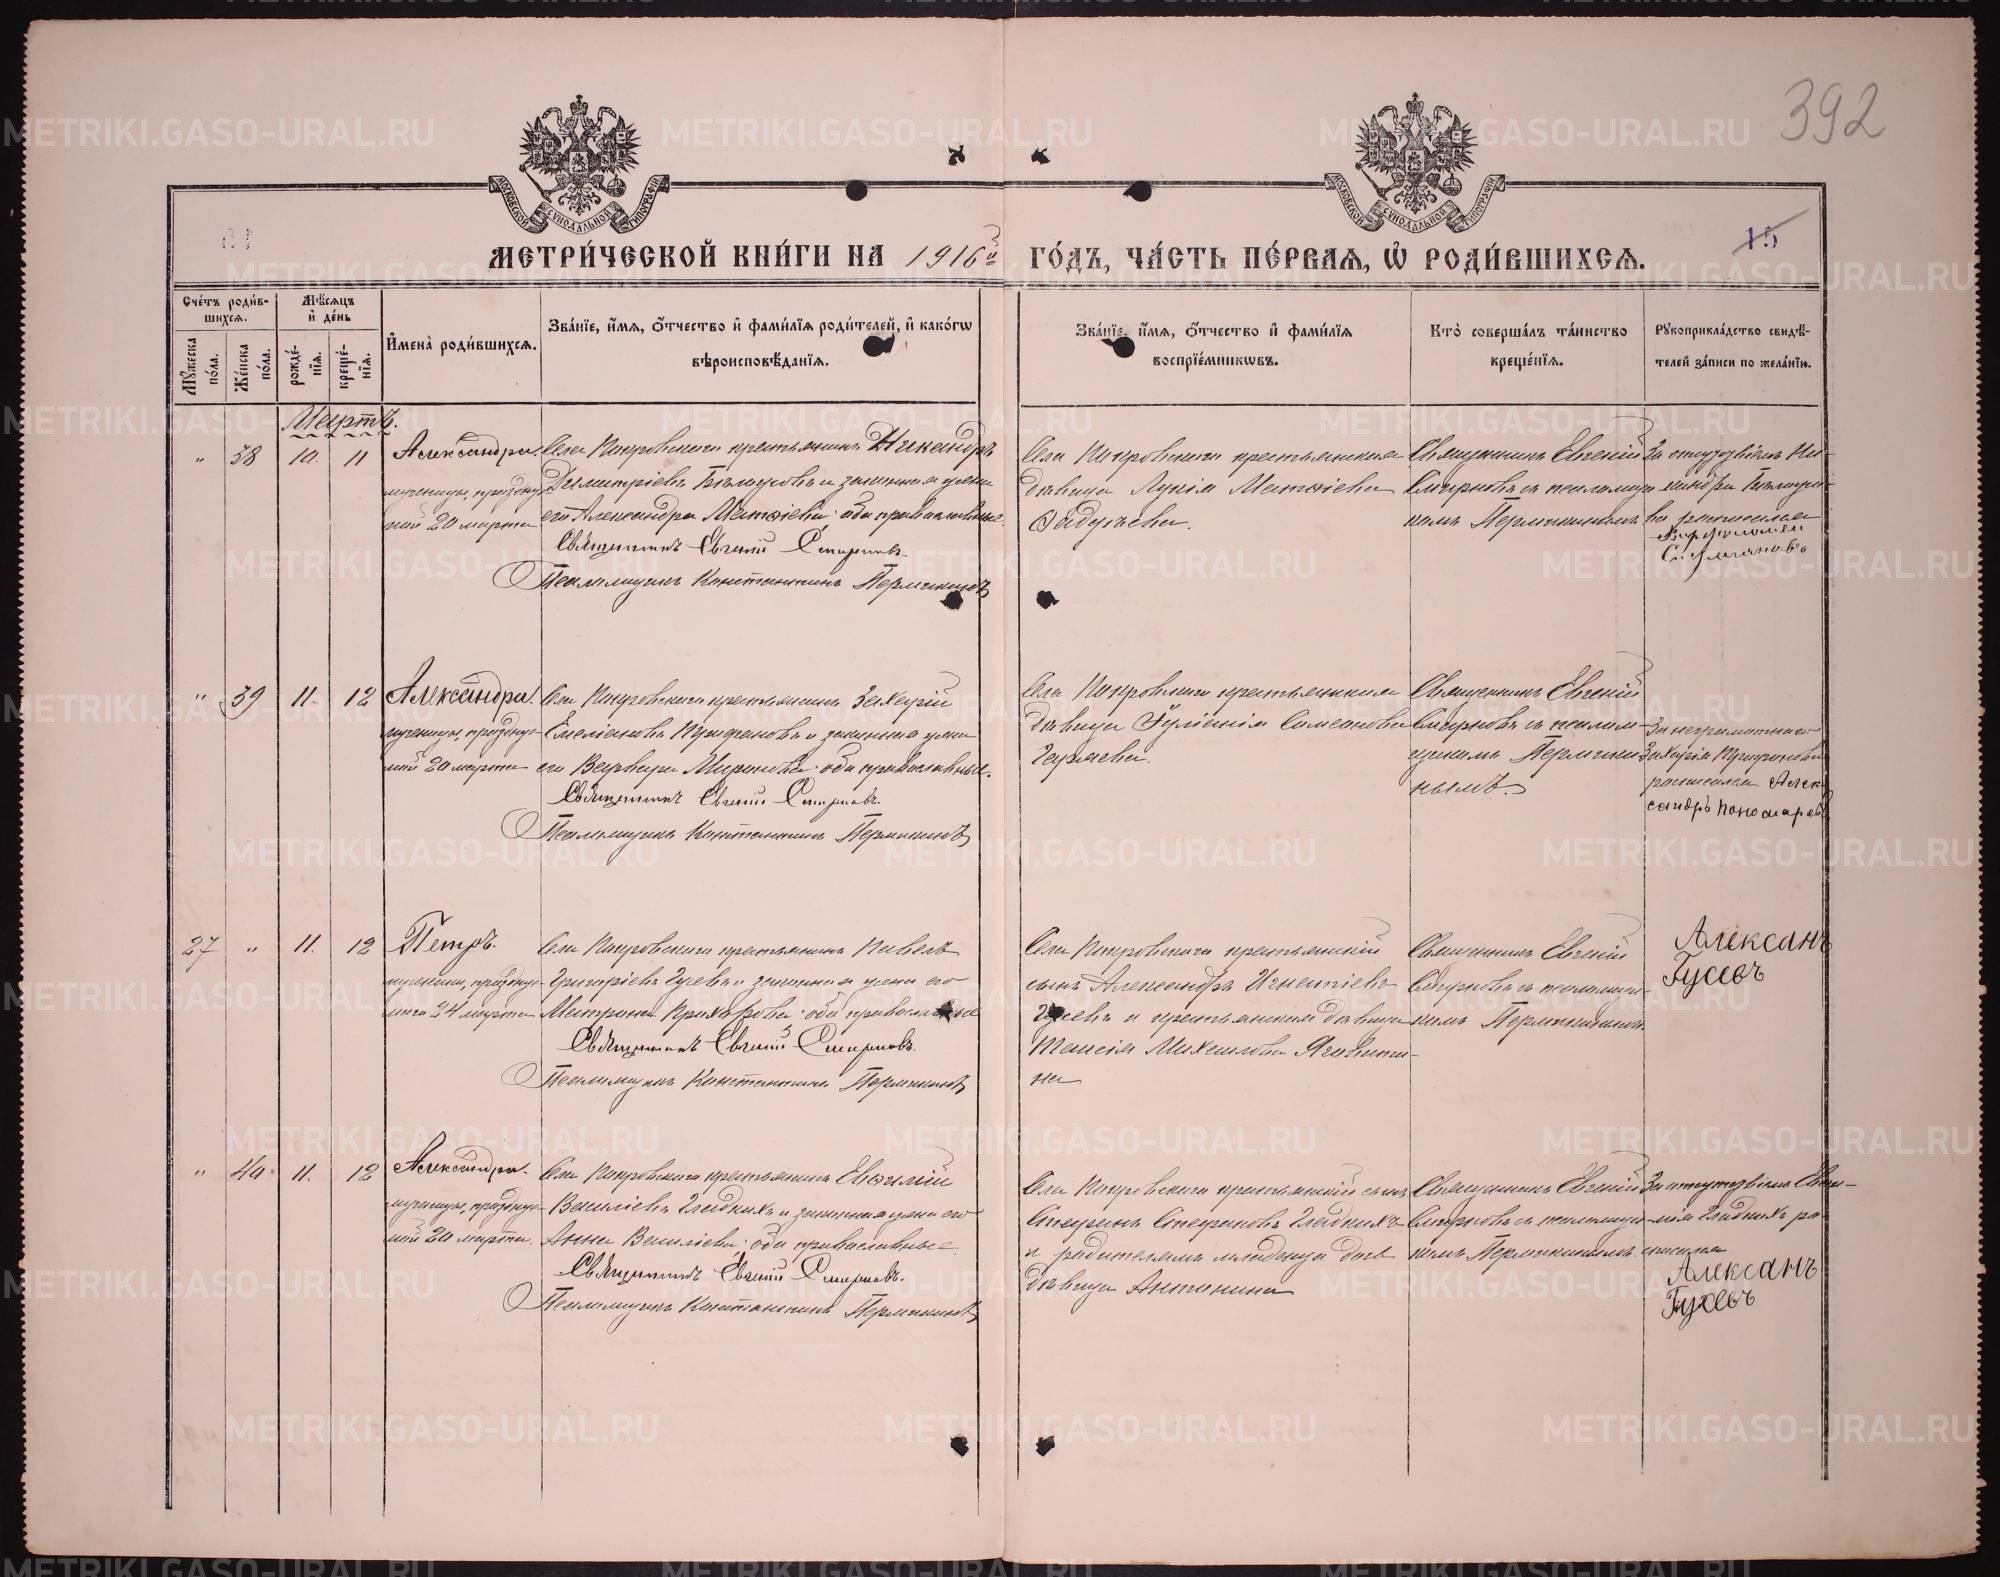 392
15
МОСКОВСКОЙ СѴНОДАЛЬНОЙ ТИПОГРАФІИ
МОСКОВСКОЙ СѴНОДАЛЬНОЙ ТИПОГРАФІИ
МЕТРИ́ЧЕСКОЙ КНИ́ГИ НА 1916й ГО́ДЪ, ЧА́СТЬ ПЕ́РВАЯ, Ѡ РОДИ́ВШИХСѦ.
Сче́тъ роди́в-
шихсѧ.
Мѣ́сѧцъ
и҆ де́нь
Мꙋ́жеска
по́ла.
Же́нска
по́ла.
рожде́-
нїѧ.
креще́-
нїѧ.
И҆мена̀ роди́вшихсѧ.
Зва́нїе, и҆́мѧ, ѻ҆́тчество и҆ фами́лїѧ роди́телей, и҆ како́гѡ
вѣроисповѣ́данїѧ.
Зва́нїе, и҆́мѧ, ѻ҆́тчество и҆ фами́лїѧ
воспрїе́мникѡвъ.
Кто̀ соверша́лъ та́инство
креще́нїѧ.
Рꙋкоприкла́дство свидѣ́-
телей за́писи по жела́нїю.
Мартъ.
" 38 10. 11
Александра.
мученицы, праздну-
мой 20 марта
Села Покровскаго крестьянинъ Никандръ
Димитріевъ и законная жена
его Александра Матѳіева оба православные.
Священникъ Евгеній Смирновъ.
Псаломщикъ Константинъ Пермикинъ
Села Покровскаго крестьянская
дѣвица Лукія Матѳіева
Священникъ Евгеній
Смирновъ съ псаломщи-
комъ Пермикинымъ
За отсутствіемъ Ни-
кандра
росписался
" 39 11. 12
Александра.
мученицы, праздну-
мой 20 марта
Села Покровскаго крестьянинъ Захарій
Емеліановъ и законная жена
его Варвара Миронова оба православные.
Священникъ Евгеній Смирновъ.
Псаломщикъ Константинъ Пермикинъ
Села Покровскаго крестьянская
дѣвица Іуліанія Симеонова
Священникъ Евгеній
Смирновъ съ псалом-
щикомъ Пермики-
нымъ.
За неграмотнаго
Захарія
росписался Алек-
сандръ Пономаревъ
27 " 11. 12
Петръ.
мученика, праздну-
маго 24 марта
Села Покровскаго крестьянинъ Павелъ
Григоріевъ Гусевъ и законная жена его
Матрона оба православные
Священникъ Евгеній Смирновъ.
Псаломщикъ Константинъ Пермикинъ
Села Покровскаго крестьянскій
сынъ Александръ Игнатіевъ
Гусевъ и крестьянская дѣвица
Таисія Михаилова
на
Священникъ Евгеній
Смирновъ съ псаломщи-
комъ Пермикинымъ.
Алексанъ
Гусевъ
" 40 11. 12
Александра.
мученицы, праздну-
мой 20 марта.
Села Покровскаго крестьянинъ Евѳимій
Василіевъ Гладкихъ и законная жена его
Анна Василіева оба православные.
Священникъ Евгеній Смирновъ.
Псаломщикъ Константинъ Пермикинъ
Села Покровскаго крестьянскій сынъ
Стефанъ Стефановъ Гладкихъ
и родителемъ младенца дочь
дѣвица Антонина
Священникъ Евгеній
Смирновъ съ псаломщи-
комъ Пермикинымъ.
За отсутствіемъ Евѳи-
мія Гладкихъ ро-
списался
Алексанъ
Гусевъ
METRIKI.GASO-URAL.RU